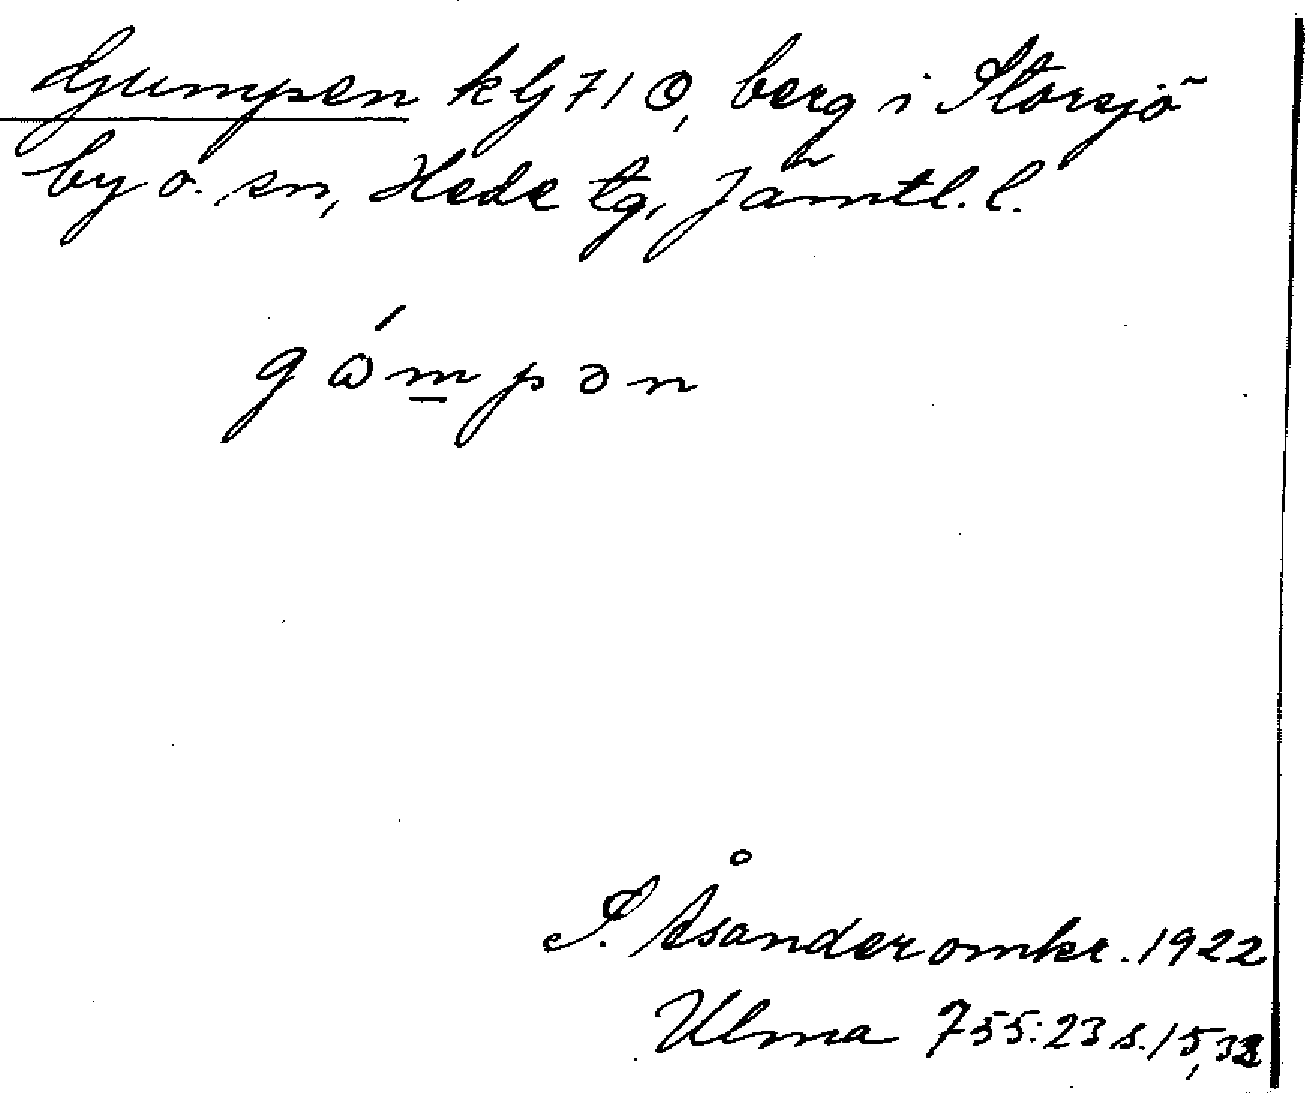 Gumpen kG 71 O, berg i Storsjö
by o. sn, Hede tg, Jämtl. l.
gɷ́m̲pən
S. Åsander omkr. 1922
Ulma 755:23 s. 15,